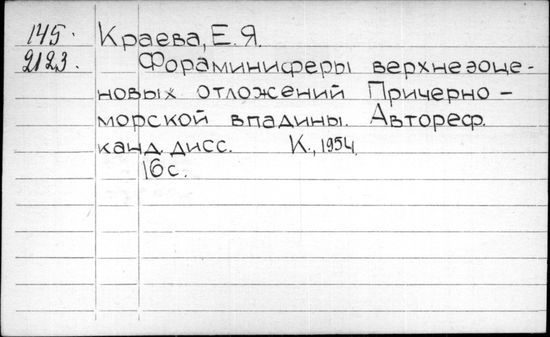 145. Краева, Е.Я.
2123. Фораминиферы верхнеэоце-
новых отложений Причерно-
морской впадины. Автореф.
канд. дисс. К., 1954.
16 с.